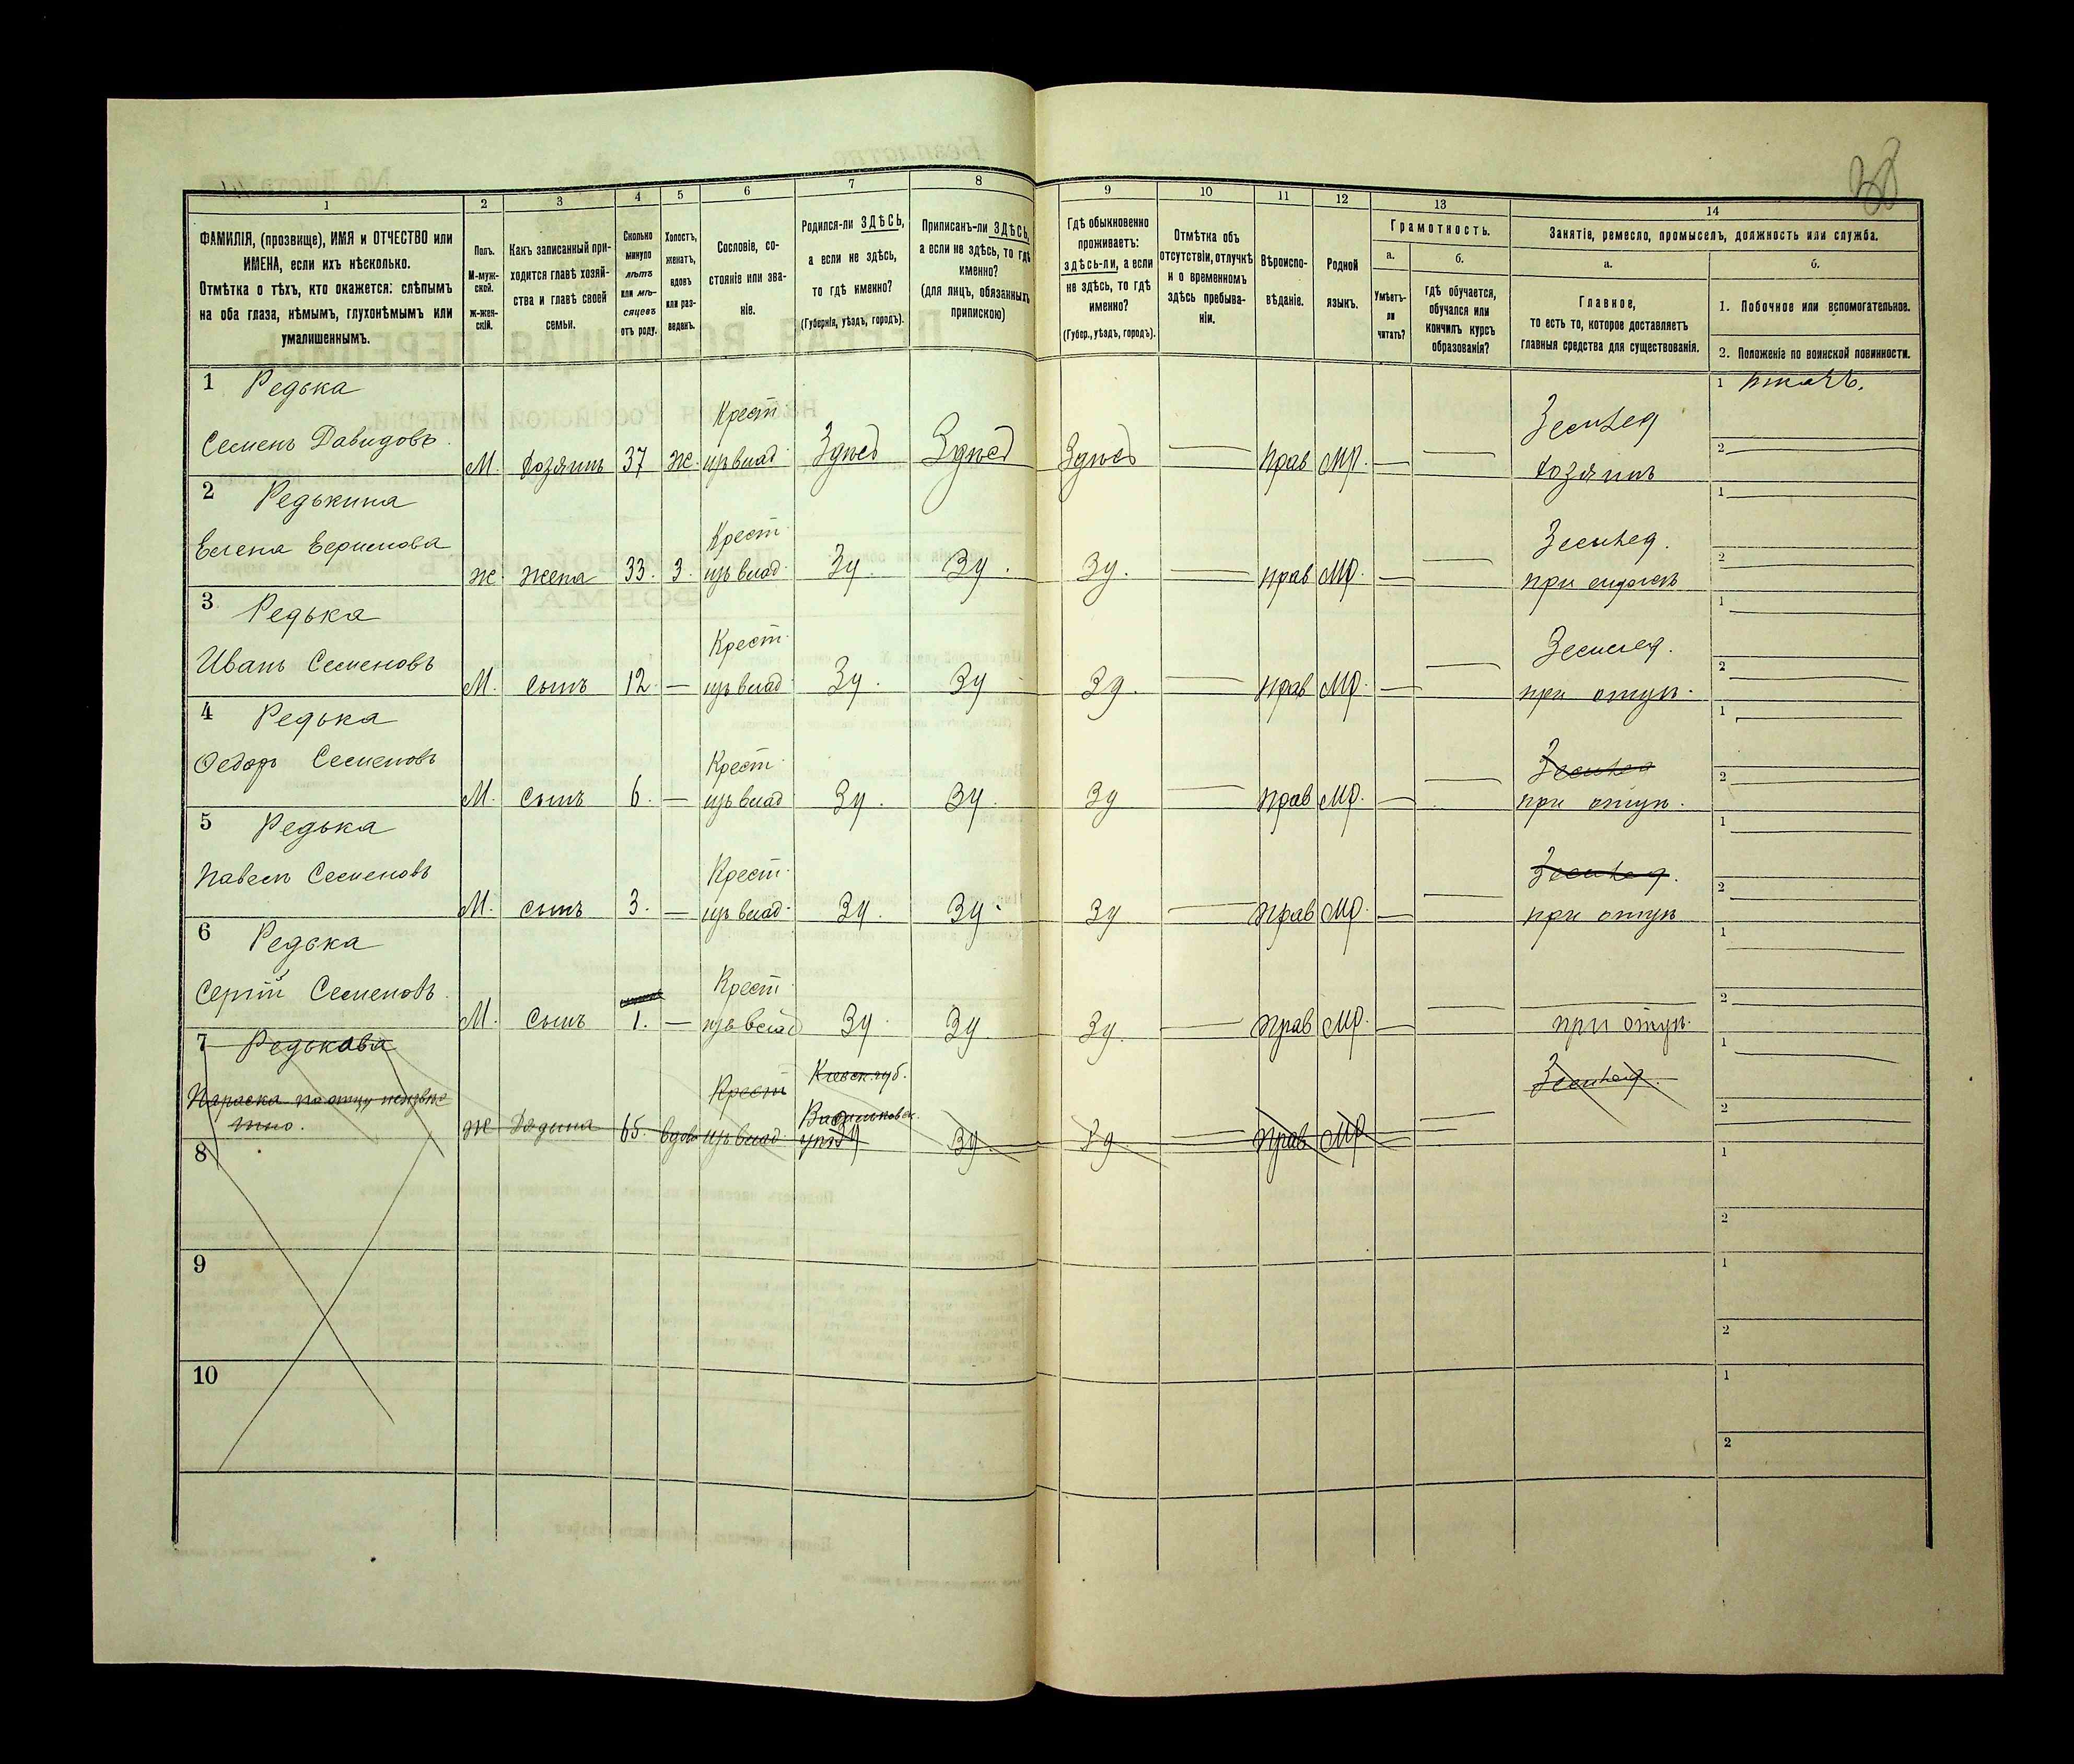 38
1 2 3 4 5 6 7 8 9 10 11 12 13 14
ФАМИЛІЯ, (прозвище), ИМЯ и ОТЧЕСТВО или
ИМЕНА, если ихъ нѣсколько.
Отмѣтка о тѣхъ, кто окажется: слѣпымъ
на оба глаза, нѣмымъ, глухонѣмымъ или
умалишеннымъ.
Полъ.
М-муж-
ской.
Ж-жен-
скій.
Какъ записанный при-
ходится главѣ хозяй-
ства и главѣ своей
семьи.
Сколько
минуло
лѣтъ
или мѣ-
сяцевъ
отъ роду.
Холостъ,
женатъ,
вдовъ
или раз-
веденъ.
Сословіе, со-
стояніе или зва-
ніе.
Родился-ли ЗДѢСЬ,
а если не здѣсь,
то гдѣ именно?
(Губернія, уѣздъ, городъ).
Приписанъ-ли ЗДѢСЬ,
а если не здѣсь, то гдѣ
именно?
(для лицъ, обязанныхъ
припискою)
Гдѣ обыкновенно
проживаетъ:
здѣсь-ли, а если
не здѣсь, то гдѣ
именно?
(Губер., уѣздъ, городъ).
Отмѣтка объ
отсутствіи, отлучкѣ
и о временномъ
здѣсь пребыва-
ніи.
Вѣроиспо-
вѣданіе.
Родной
языкъ.
Грамотность.
а.
Умѣетъ-
ли
читать?
б.
гдѣ обучается,
обучался или
кончилъ курсъ
образованія?
Занятіе, ремесло, промыселъ, должность или служба.
а.
Главное,
то есть то, которое доставляетъ
главныя средства для существованія.
б.
1. Побочное или вспомогательное.
2. Положеніе по воинской повинности.
1 Редька
Семенъ Давидовъ
М. хозяинъ 37 ж.
Крест
изъ влад
Здѣсь Здѣсь Здѣсь — Прав МР. — —
Землед
хозяинъ
1 ткачъ.
2
2 Редькина
Елена Ефимова
Ж. жена 33. З.
Крест
изъ влад
Зд. Зд. Зд. — прав МР. — —
Землед.
при
1
2
3 Редька
Иванъ Семеновъ
М. сынъ 12 —
Крест
изъ влад
Зд. Зд Зд. — прав МР. — —
Землед.
при отцѣ.
1
2
4 Редька
Ѳедоръ Семеновъ
М. сынъ 6. —
Крест
изъ влад
Зд. Зд. Зд — прав МР. — —
Землед
при отцѣ.
1
2
5 Редька
Павелъ Семеновъ
М. сынъ 3. —
Крест
изъ влад
Зд. Зд. Зд — прав МР. — —
Землед.
при отцѣ
1
2
6 Редька
Сергій Семеновъ
М. сынъ 1. —
Крест
изъ влад
Зд. Зд. Зд. — прав МР. — —
при отцѣ.
1
2
7 Редькова
Параска по отцу неизвѣ-
тно.
Ж 65. вдов
Крест
изъ влад
Кіевск. губ.
Васильковск.
Зд. Зд — прав МР —
Землед.
1
2
8
1
2
9
1
2
10
1
2